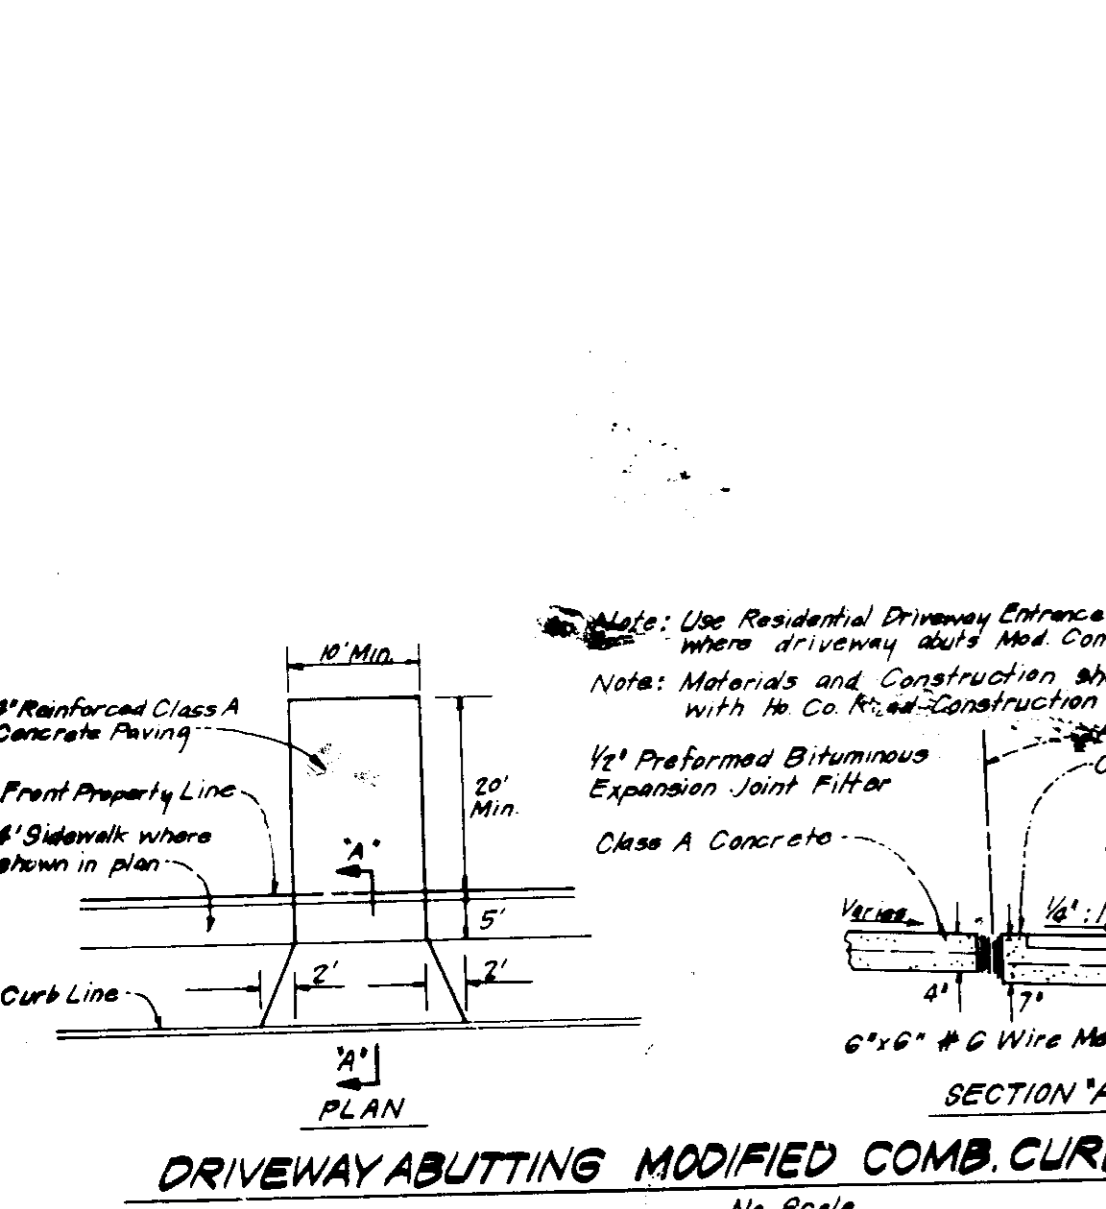 10' Min.
4" Reinforced Class A
Concrete Paving
Front Property Line
4' Sidewalk where
shown in plan
20'
Min.
"A"
5'
2'
2'
Curb Line
"A"
PLAN
Note: Use Residential Driveway Entrance
where driveway abuts Mod.
Note: Materials and Construction
with Ho. Co. Construction
1/2" Preformed Bituminous
Expansion Joint Filter
Class A Concrete
Varies
1/4" :
4"
7"
6"x6" # 6 Wire
SECTION
DRIVEWAY ABUTTING MODIFIED COMB.
No Scale